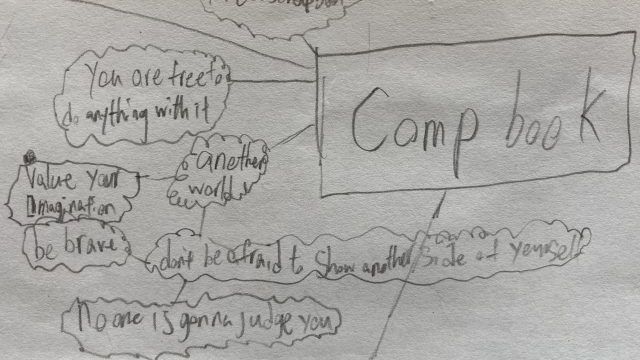 You are free to
do anything with it
Comp book
another
world
Value your
Imagination
be brave
don't be afraid to show another side of yourself
No one is gonna judge you